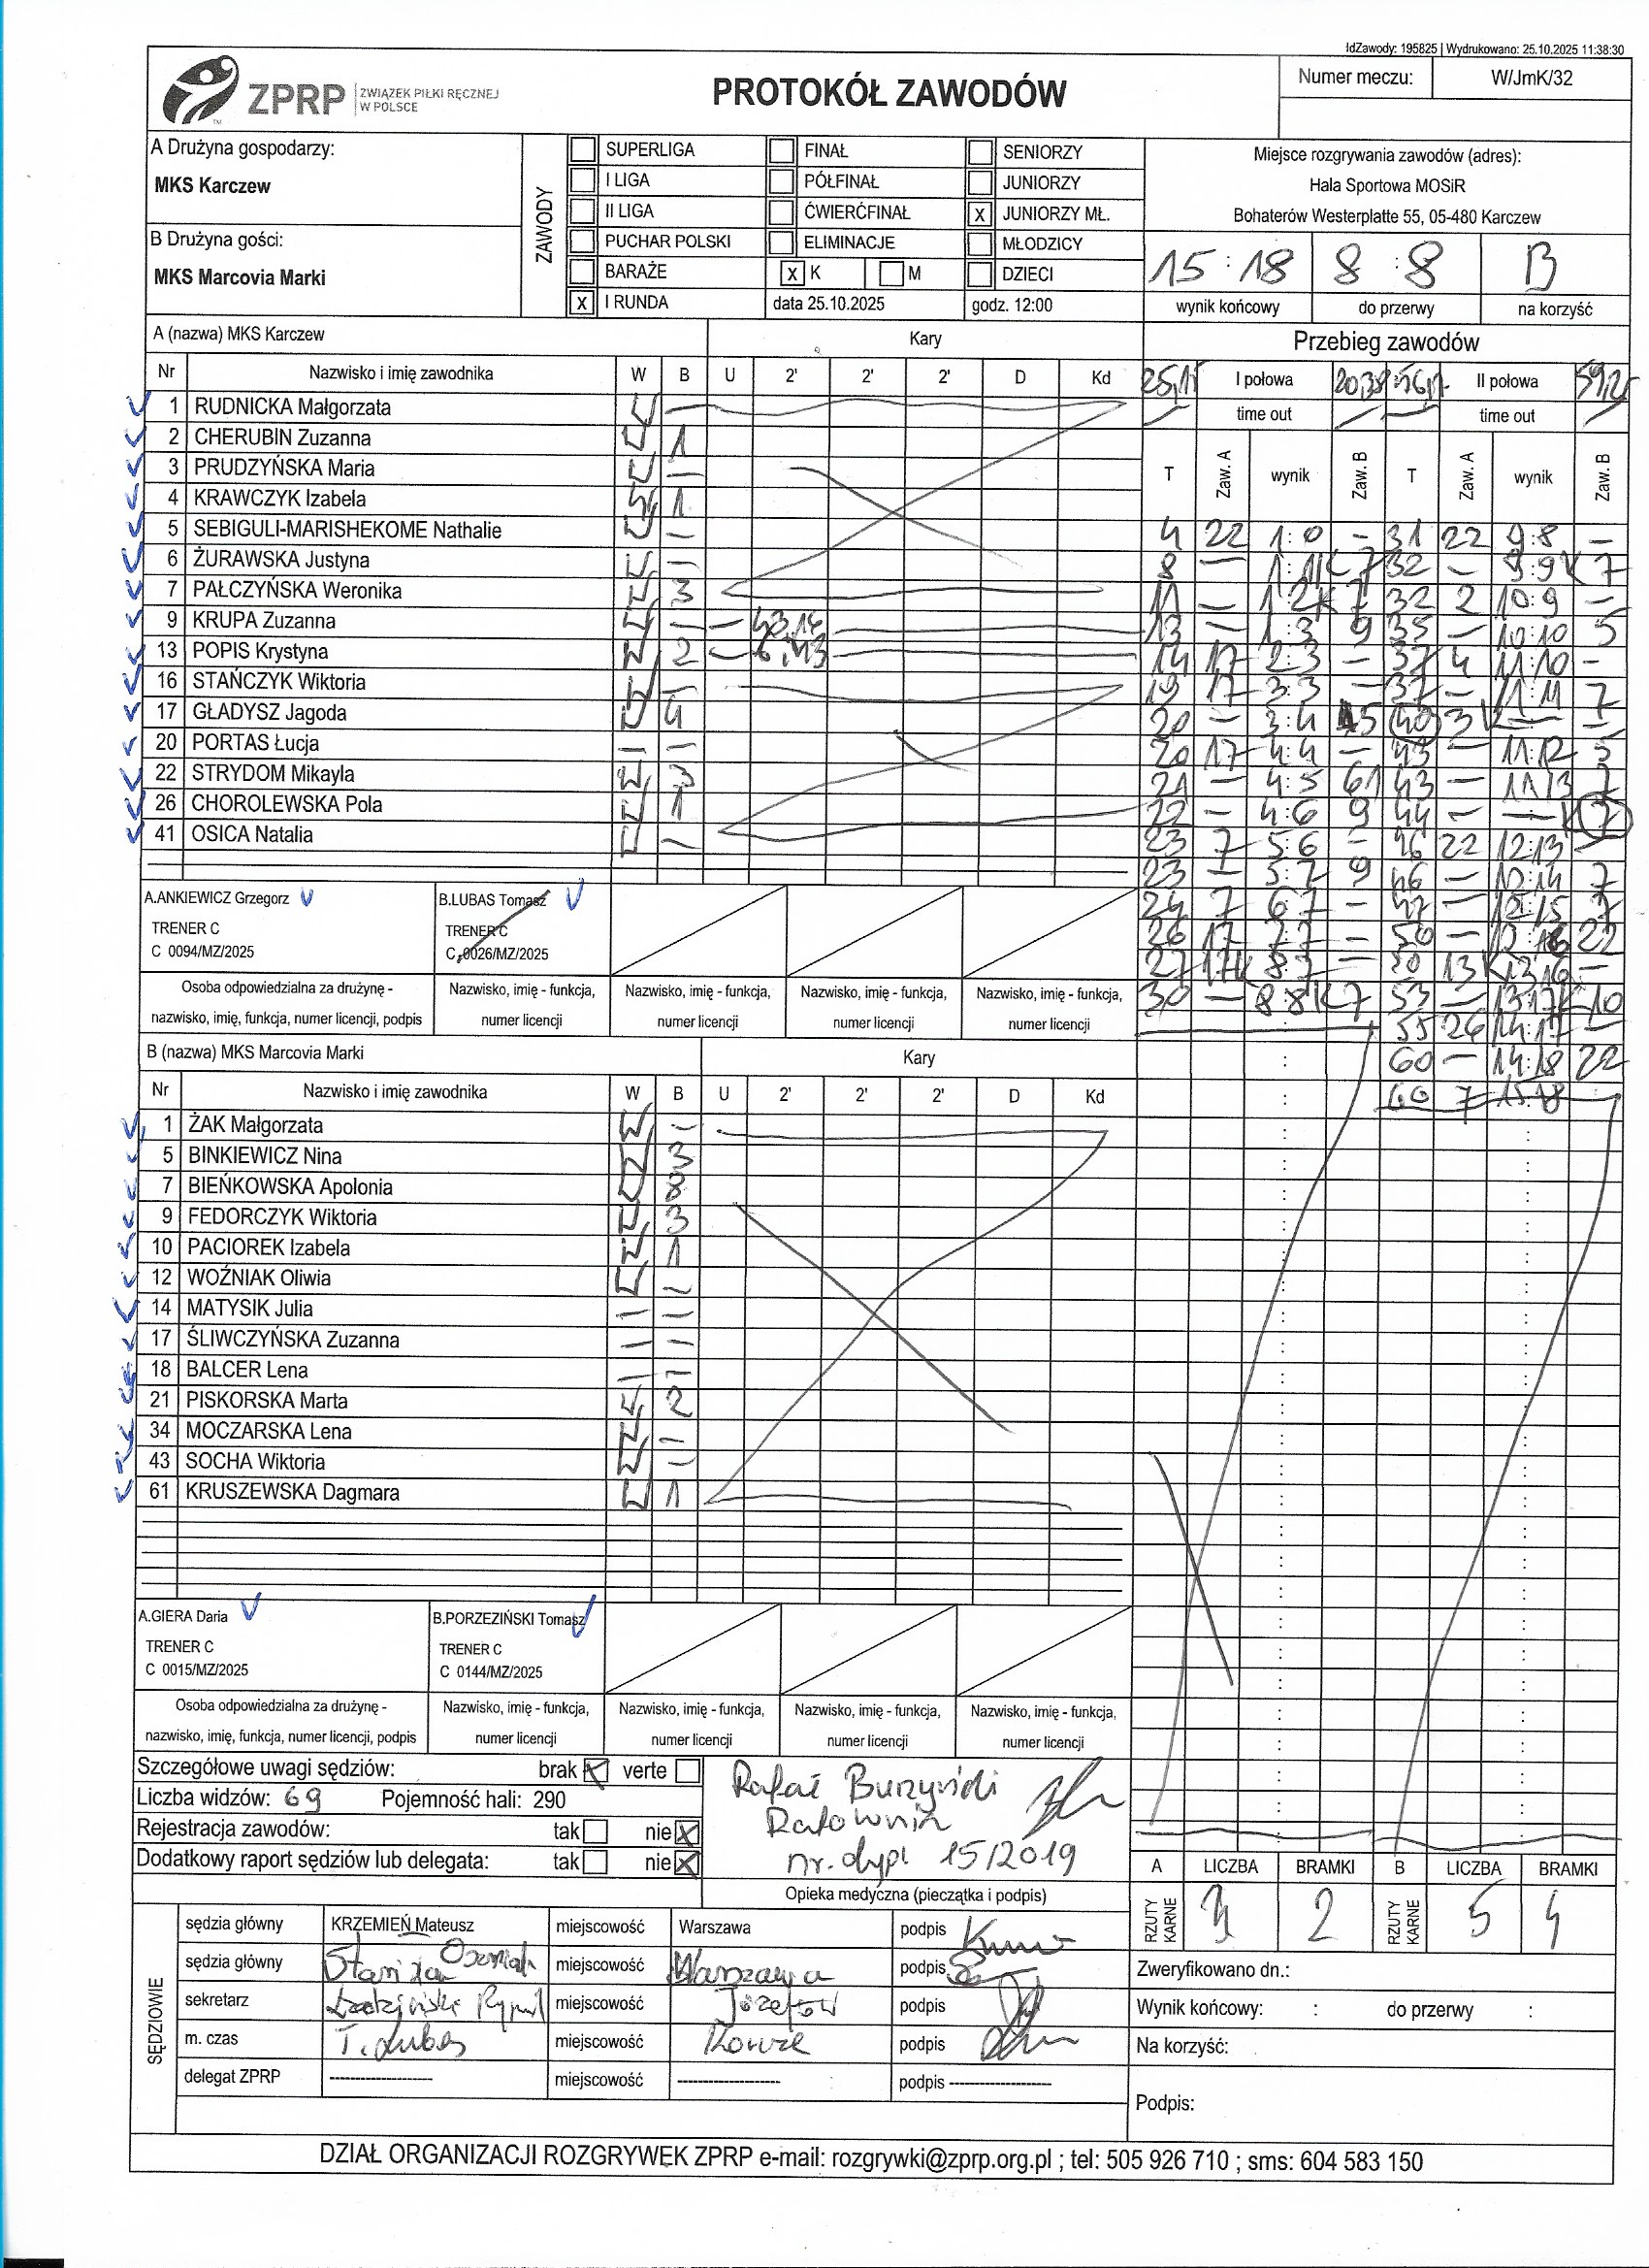 IdZawody: 195825 | Wydrukowano: 25.10.2025 11:38:30
ZPRP ZWIĄZEK PIŁKI RĘCZNEJ
W POLSCE
PROTOKÓŁ ZAWODÓW
Numer meczu: W/JmK/32
A Drużyna gospodarzy:
MKS Karczew
B Drużyna gości:
MKS Marcovia Marki
ZAWODY
SUPERLIGA FINAŁ SENIORZY
I LIGA PÓŁFINAŁ JUNIORZY
II LIGA ĆWIERĆFINAŁ X JUNIORZY MŁ.
PUCHAR POLSKI ELIMINACJE MŁODZICY
BARAŻE X K M DZIECI
X I RUNDA data 25.10.2025 godz. 12:00
Miejsce rozgrywania zawodów (adres):
Hala Sportowa MOSiR
Bohaterów Westerplatte 55, 05-480 Karczew
15:18 8:8 B
wynik końcowy do przerwy na korzyść
A (nazwa) MKS Karczew Kary
Nr Nazwisko i imię zawodnika W B U 2' 2' 2' D Kd
1 RUDNICKA Małgorzata —
2 CHERUBIN Zuzanna 1
3 PRUDZYŃSKA Maria —
4 KRAWCZYK Izabela 1
5 SEBIGULI-MARISHEKOME Nathalie —
6 ŻURAWSKA Justyna —
7 PAŁCZYŃSKA Weronika 3
9 KRUPA Zuzanna — — 43,14
13 POPIS Krystyna 2 — 6,43
16 STAŃCZYK Wiktoria —
17 GŁADYSZ Jagoda 4
20 PORTAS Łucja — —
22 STRYDOM Mikayla 3
26 CHOROLEWSKA Pola 1
41 OSICA Natalia —
A.ANKIEWICZ Grzegorz
TRENER C
C 0094/MZ/2025
B.LUBAS Tomasz
TRENER C
C 0026/MZ/2025
Osoba odpowiedzialna za drużynę -
nazwisko, imię, funkcja, numer licencji, podpis
Nazwisko, imię - funkcja,
numer licencji
Nazwisko, imię - funkcja,
numer licencji
Nazwisko, imię - funkcja,
numer licencji
Nazwisko, imię - funkcja,
numer licencji
B (nazwa) MKS Marcovia Marki Kary
Nr Nazwisko i imię zawodnika W B U 2' 2' 2' D Kd
1 ŻAK Małgorzata —
5 BINKIEWICZ Nina 3
7 BIEŃKOWSKA Apolonia 8
9 FEDORCZYK Wiktoria 3
10 PACIOREK Izabela 1
12 WOŹNIAK Oliwia —
14 MATYSIK Julia — —
17 ŚLIWCZYŃSKA Zuzanna — —
18 BALCER Lena — —
21 PISKORSKA Marta 2
34 MOCZARSKA Lena —
43 SOCHA Wiktoria —
61 KRUSZEWSKA Dagmara 1
A.GIERA Daria
TRENER C
C 0015/MZ/2025
B.PORZEZIŃSKI Tomasz
TRENER C
C 0144/MZ/2025
Osoba odpowiedzialna za drużynę -
nazwisko, imię, funkcja, numer licencji, podpis
Nazwisko, imię - funkcja,
numer licencji
Nazwisko, imię - funkcja,
numer licencji
Nazwisko, imię - funkcja,
numer licencji
Nazwisko, imię - funkcja,
numer licencji
Przebieg zawodów
I połowa II połowa
time out time out
T Zaw. A wynik Zaw. B T Zaw. A wynik Zaw. B
4 22 1:0 — 31 22 9:8 —
8 — 1:1 K 7 32 — 9:9 K 7
11 — 1:2 K 7 32 2 10:9 —
13 — 1:3 9 35 — 10:10 5
14 17 2:3 — 37 4 11:10 —
19 17 3:3 — 37 — 11:11 7
20 — 3:4 5 40 3 K — —
20 17 4:4 — 43 — 11:12 5
21 — 4:5 61 43 — 11:13 7
22 — 4:6 9 44 — — K 7
23 7 5:6 — 46 22 12:13 —
23 — 5:7 9 46 — 12:14 7
24 7 6:7 — 47 — 12:15 7
26 17 7:7 — 50 — 12:16 22
27 17 K 8:7 — 50 13 K 13:16 —
30 — 8:8 K 7 53 — 13:17 K 10
55 26 14:17 —
60 — 14:18 22
60 7 15:18
Szczegółowe uwagi sędziów: brak X verte
Liczba widzów: 69 Pojemność hali: 290
Rejestracja zawodów: tak nie X
Dodatkowy raport sędziów lub delegata: tak nie X
Rafał Burzyński
Ratownik
nr. dypl 15/2019
Opieka medyczna (pieczątka i podpis)
A LICZBA BRAMKI B LICZBA BRAMKI
RZUTY KARNE 3 2 RZUTY KARNE 5 4
SĘDZIOWIE
sędzia główny KRZEMIEŃ Mateusz miejscowość Warszawa podpis
sędzia główny miejscowość Warszawa podpis
sekretarz miejscowość Józefów podpis
m. czas T. Lubas miejscowość podpis
delegat ZPRP -------------------- miejscowość -------------------- podpis --------------------
Zweryfikowano dn.:
Wynik końcowy: : do przerwy :
Na korzyść:
Podpis:
DZIAŁ ORGANIZACJI ROZGRYWEK ZPRP e-mail: rozgrywki@zprp.org.pl ; tel: 505 926 710 ; sms: 604 583 150